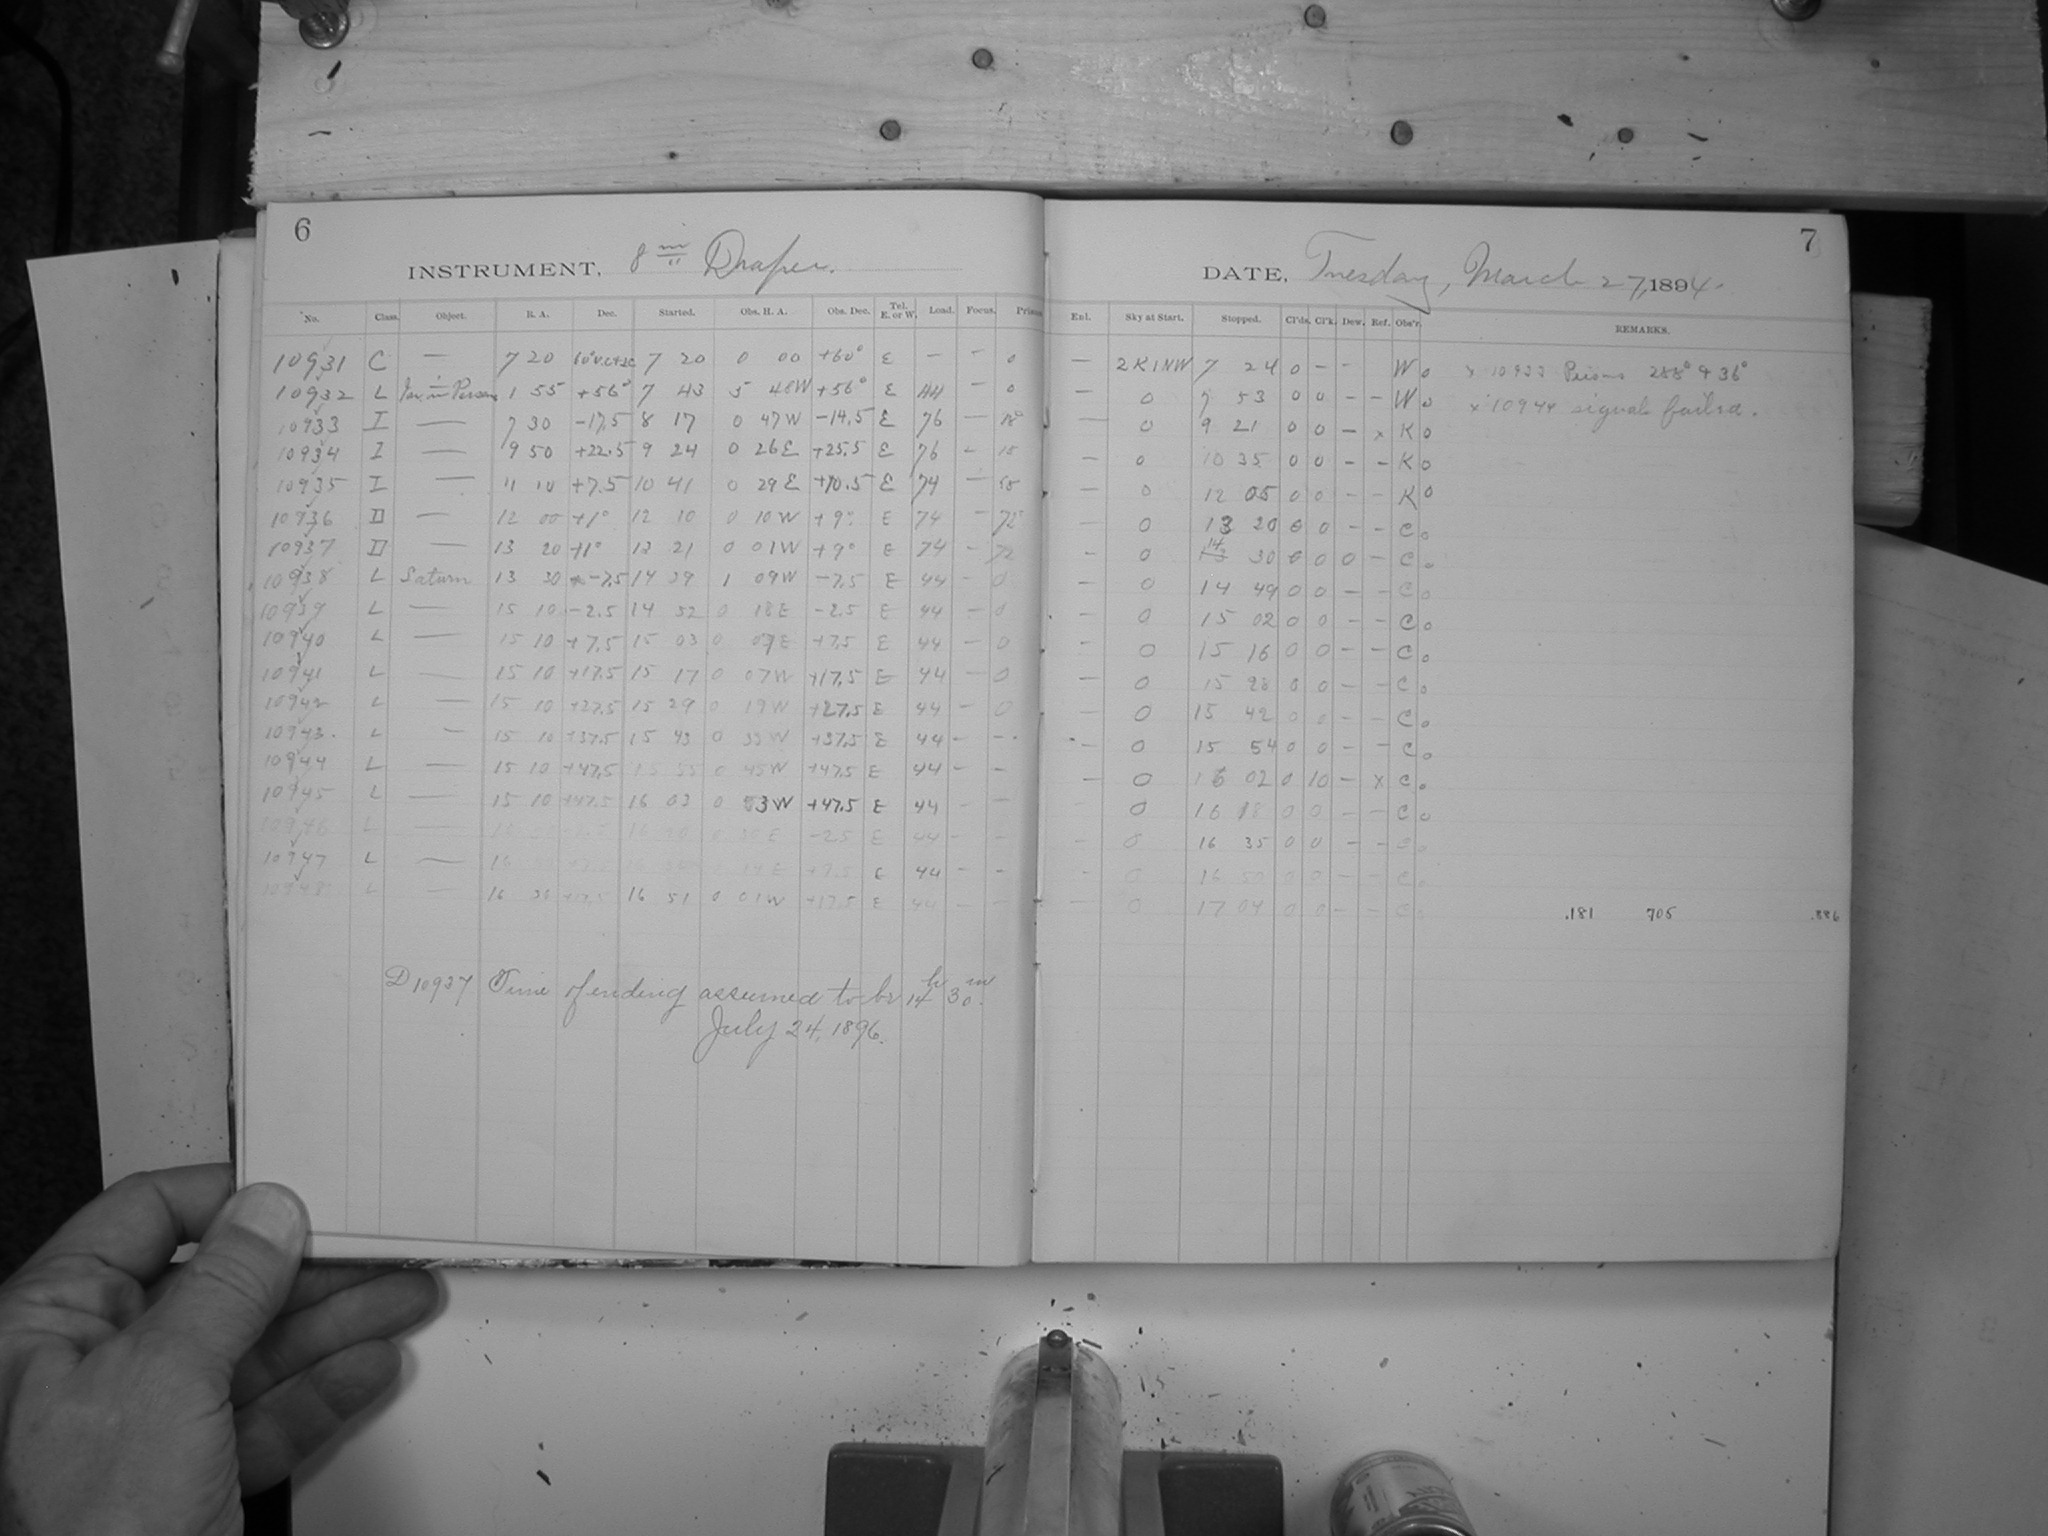 6
INSTRUMENT, 8 in Draper.
No. Class. Object. R. A. Dec. Started. Obs. H. A. Obs. Dec. Tel. E. or W. Load. Focus. Prism
10931 C — 7 20 7 20 0 00 +60° E — — 0
10932 L 1 55 +56° 7 43 5 48W +56° E 44 — 0
10933 I — 7 30 -17.5 8 17 0 47W -14.5 E 76 —
10934 I — 9 50 +22.5 9 24 0 26E +25.5 E 76 - 15
10935 I — 11 10 +7.5 10 41 0 29E +10.5 E 74 —
10936 D — 12 00 +1° 12 10 0 10W +9° E 74 - 72
10937 D — 13 20 +1° 0 01W +9° E 74 - 72
10938 L Saturn 13 30 -7.5 14 39 1 09W -7.5 E 44 — 0
10939 L — 15 10 -2.5 14 52 0 18E -2.5 E 44 — 0
10940 L — 15 10 +7.5 15 03 0 07E +7.5 E 44 — 0
10941 L — 15 10 +17.5 15 17 0 07W +17.5 E 44 — 0
10942 L — 15 10 +27.5 15 29 0 19W +27.5 E 44 - 0
10943. L — 15 10 +37.5 15 43 0 33W +37.5 E 44 — —
10944 L — 15 10 +47.5 15 55 0 45W +47.5 E 44 — —
10945 L — 15 10 +47.5 16 03 0 53W +47.5 E 44 - -
10946 L — -2.5 E 44 - -
10947 L — 16 E 44 - -
10948 L — 16 +17.5 16 51 0 01W +17.5 E 44 — —
D 10937 Time of ending assumed to be 14h 30m.
July 24, 1896.
7
DATE, Tuesday, March 27, 1894.
Enl. Sky at Start. Stopped. Cl'ds. Cl'k. Dew. Ref. Obs'r. REMARKS.
— 2K1NW 7 24 0 - - W 0 x 10933 Prisms 288° & 36°
— 0 7 53 0 0 - - W 0 x 10944 signals failed.
— 0 9 21 0 0 - x K 0
— 0 10 35 0 0 - - K 0
— 0 12 05 0 0 - - K 0
- 0 13 20 0 0 - - C 0
- 0 14 30 0 0 0 - C 0
- 0 14 49 0 0 - - C 0
- 0 15 02 0 0 - - C 0
- 0 15 16 0 0 - - C 0
- 0 15 28 0 0 - - C 0
- 0 15 42 0 0 - - C 0
- 0 15 54 0 0 - - C 0
- 0 16 02 0 10 - x C 0
- 0 16 18 0 0 - - C 0
- 0 16 35 0 0 - - C 0
- 0 16 50 0 0 - - C
- 0 17 04 0 0 - - C .181 705 .886